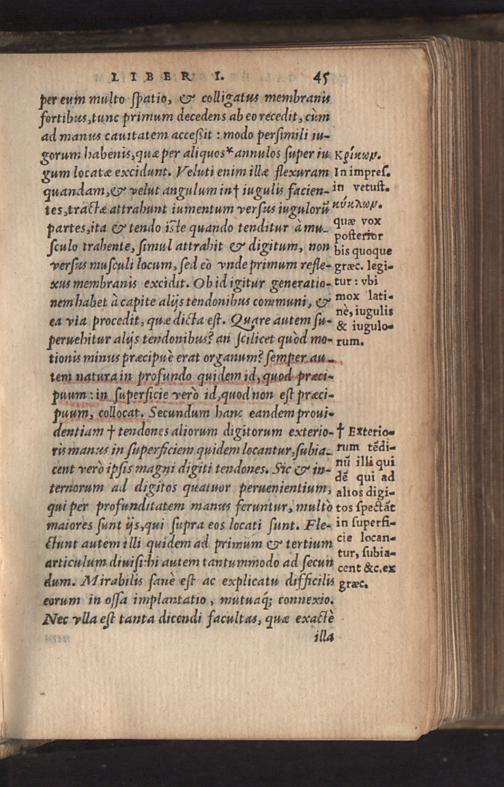 LIBER I. 45
per eum multo spatio, & colligatus membranis
fortibus, tunc primum decedens ab eo recedit, cùm
ad manus cauitatem accessit: modo persimili iu-
gorum habenis, quæ per aliquos* annulos super iu
gum locatæ excidunt. Veluti enim illæ flexuram
quandam, & velut angulum in† iugulis facien-
tes, tractæ attrahunt iumentum versus iugulorū
partes, ita & tendo iste quando tenditur à mu-
sculo trahente, simul attrahit & digitum, non
versus musculi locum, sed eò vnde primum refle-
xus membranis excidit. Ob id igitur generatio-
nem habet à capite alijs tendonibus communi, &
ea via procedit, quæ dicta est. Quare autem su-
peruehitur alijs tendonibus? an scilicet quòd mo-
tionis minus præcipuè erat organum? semper au-
tem natura in profundo quidem id, quod præci-
puum: in superficie verò id, quod non est præci-
puum, collocat. Secundum hanc eandem proui-
dentiam † tendones aliorum digitorum exterio-
ris manus in superficiem quidem locantur, subia-
cent verò ipsis magni digiti tendones. Sic & in-
ternorum ad digitos quatuor peruenientium,
qui per profunditatem manus feruntur, multò
maiores sunt ijs, qui supra eos locati sunt. Fle-
ctunt autem illi quidem ad primum & tertium
articulum diuisi: hi autem tantummodo ad secun
dum. Mirabilis sanè est ac explicatu difficilis
eorum in ossa implantatio, mutuaq; connexio.
Nec vlla est tanta dicendi facultas, quæ exactè
illa
Κρίκων.
In impres.
in vetust.
κύκλων.
quæ vox
posterior
bis quoque
græc. legi-
tur: vbi
mox lati-
nè, iugulis
& iugulo-
rum.
† Exterio-
rum tēdi-
nū illi qui
dē qui ad
alios digi-
tos spectāt
in superfi-
cie locan-
tur, subia-
cent &c. ex
græc.